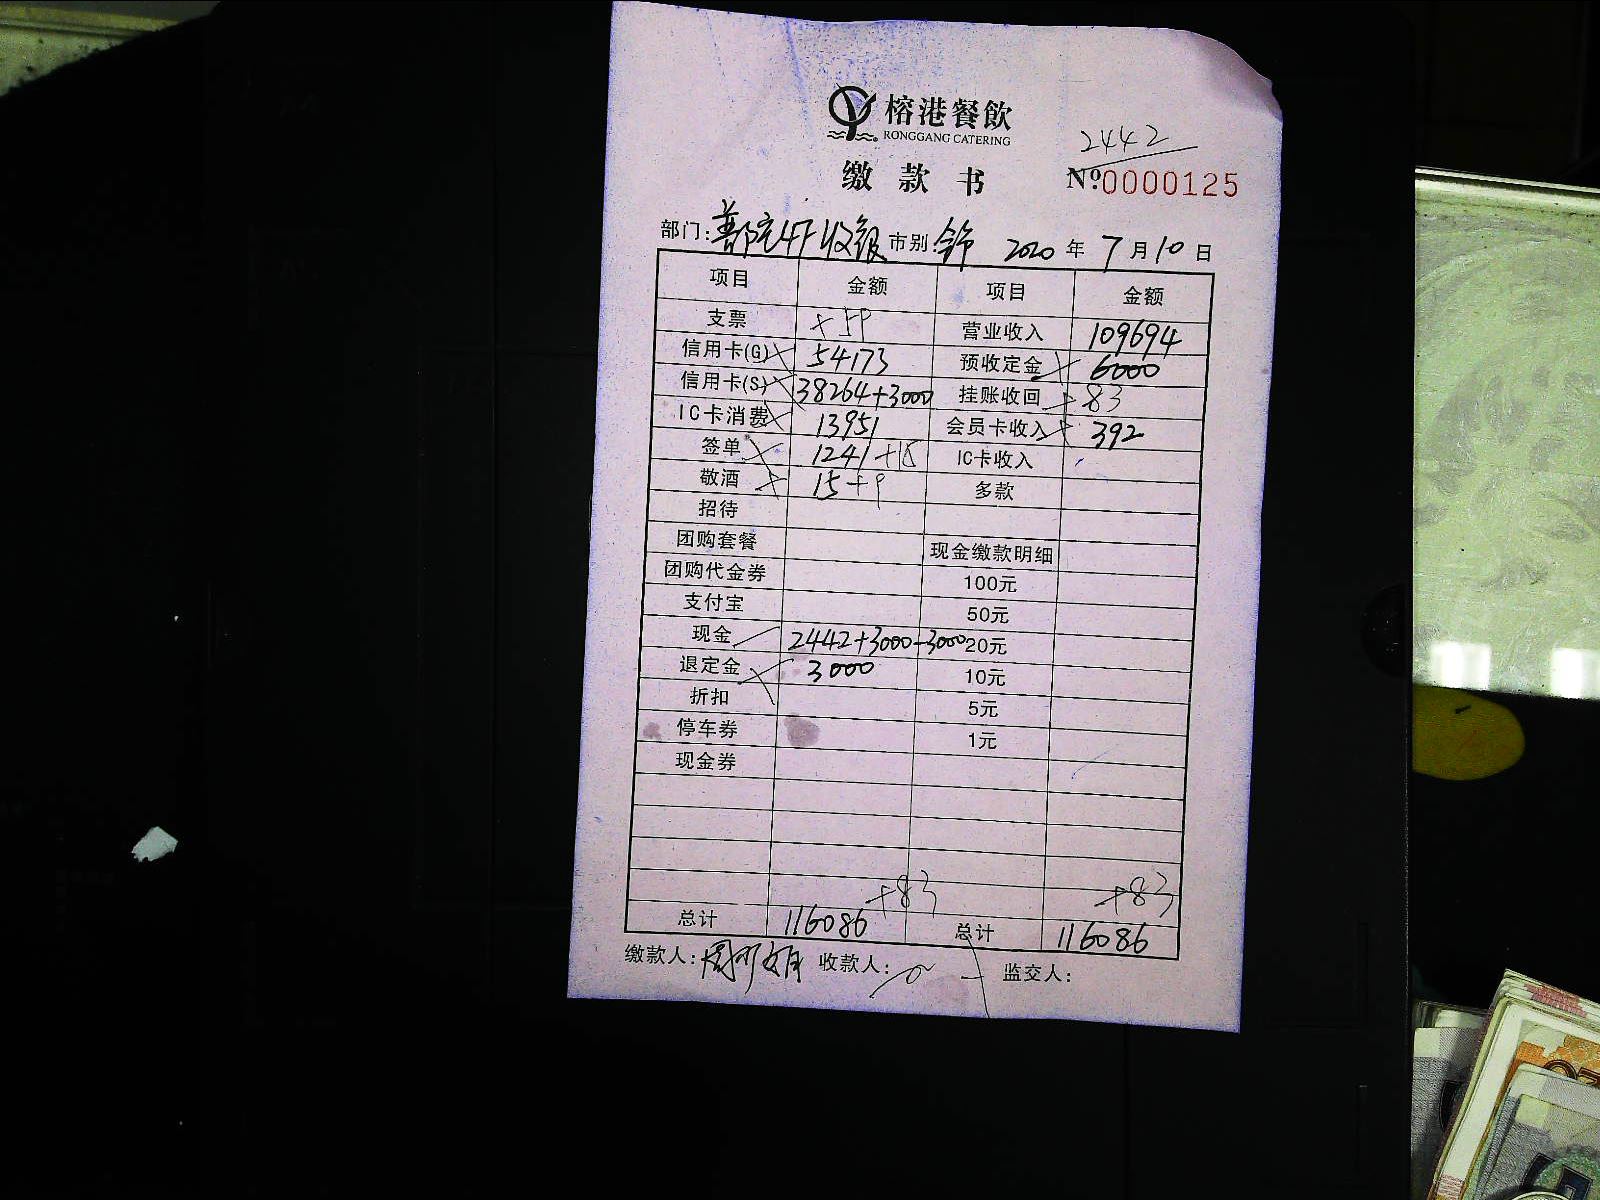 榕港餐飲
RONGGANG CATERING
2442
缴款书 Nº:0000125
部门: 4F收银 市别: 2020年7月10日
项目 金额 项目 金额
支票 +59 营业收入 109694
信用卡(G) 54173 预收定金 6000
信用卡(S) 38264+3000 挂账收回 +83
IC卡消费 13951 会员卡收入 392
签单 1241+15 IC卡收入
敬酒 15+9 多款
招待
团购套餐 现金缴款明细
团购代金券 100元
支付宝 50元
现金 2442+3000-3000 20元
退定金 3000 10元
折扣 5元
停车券 1元
现金券
+83 +83
总计 116086 总计 116086
缴款人: 收款人: 监交人: